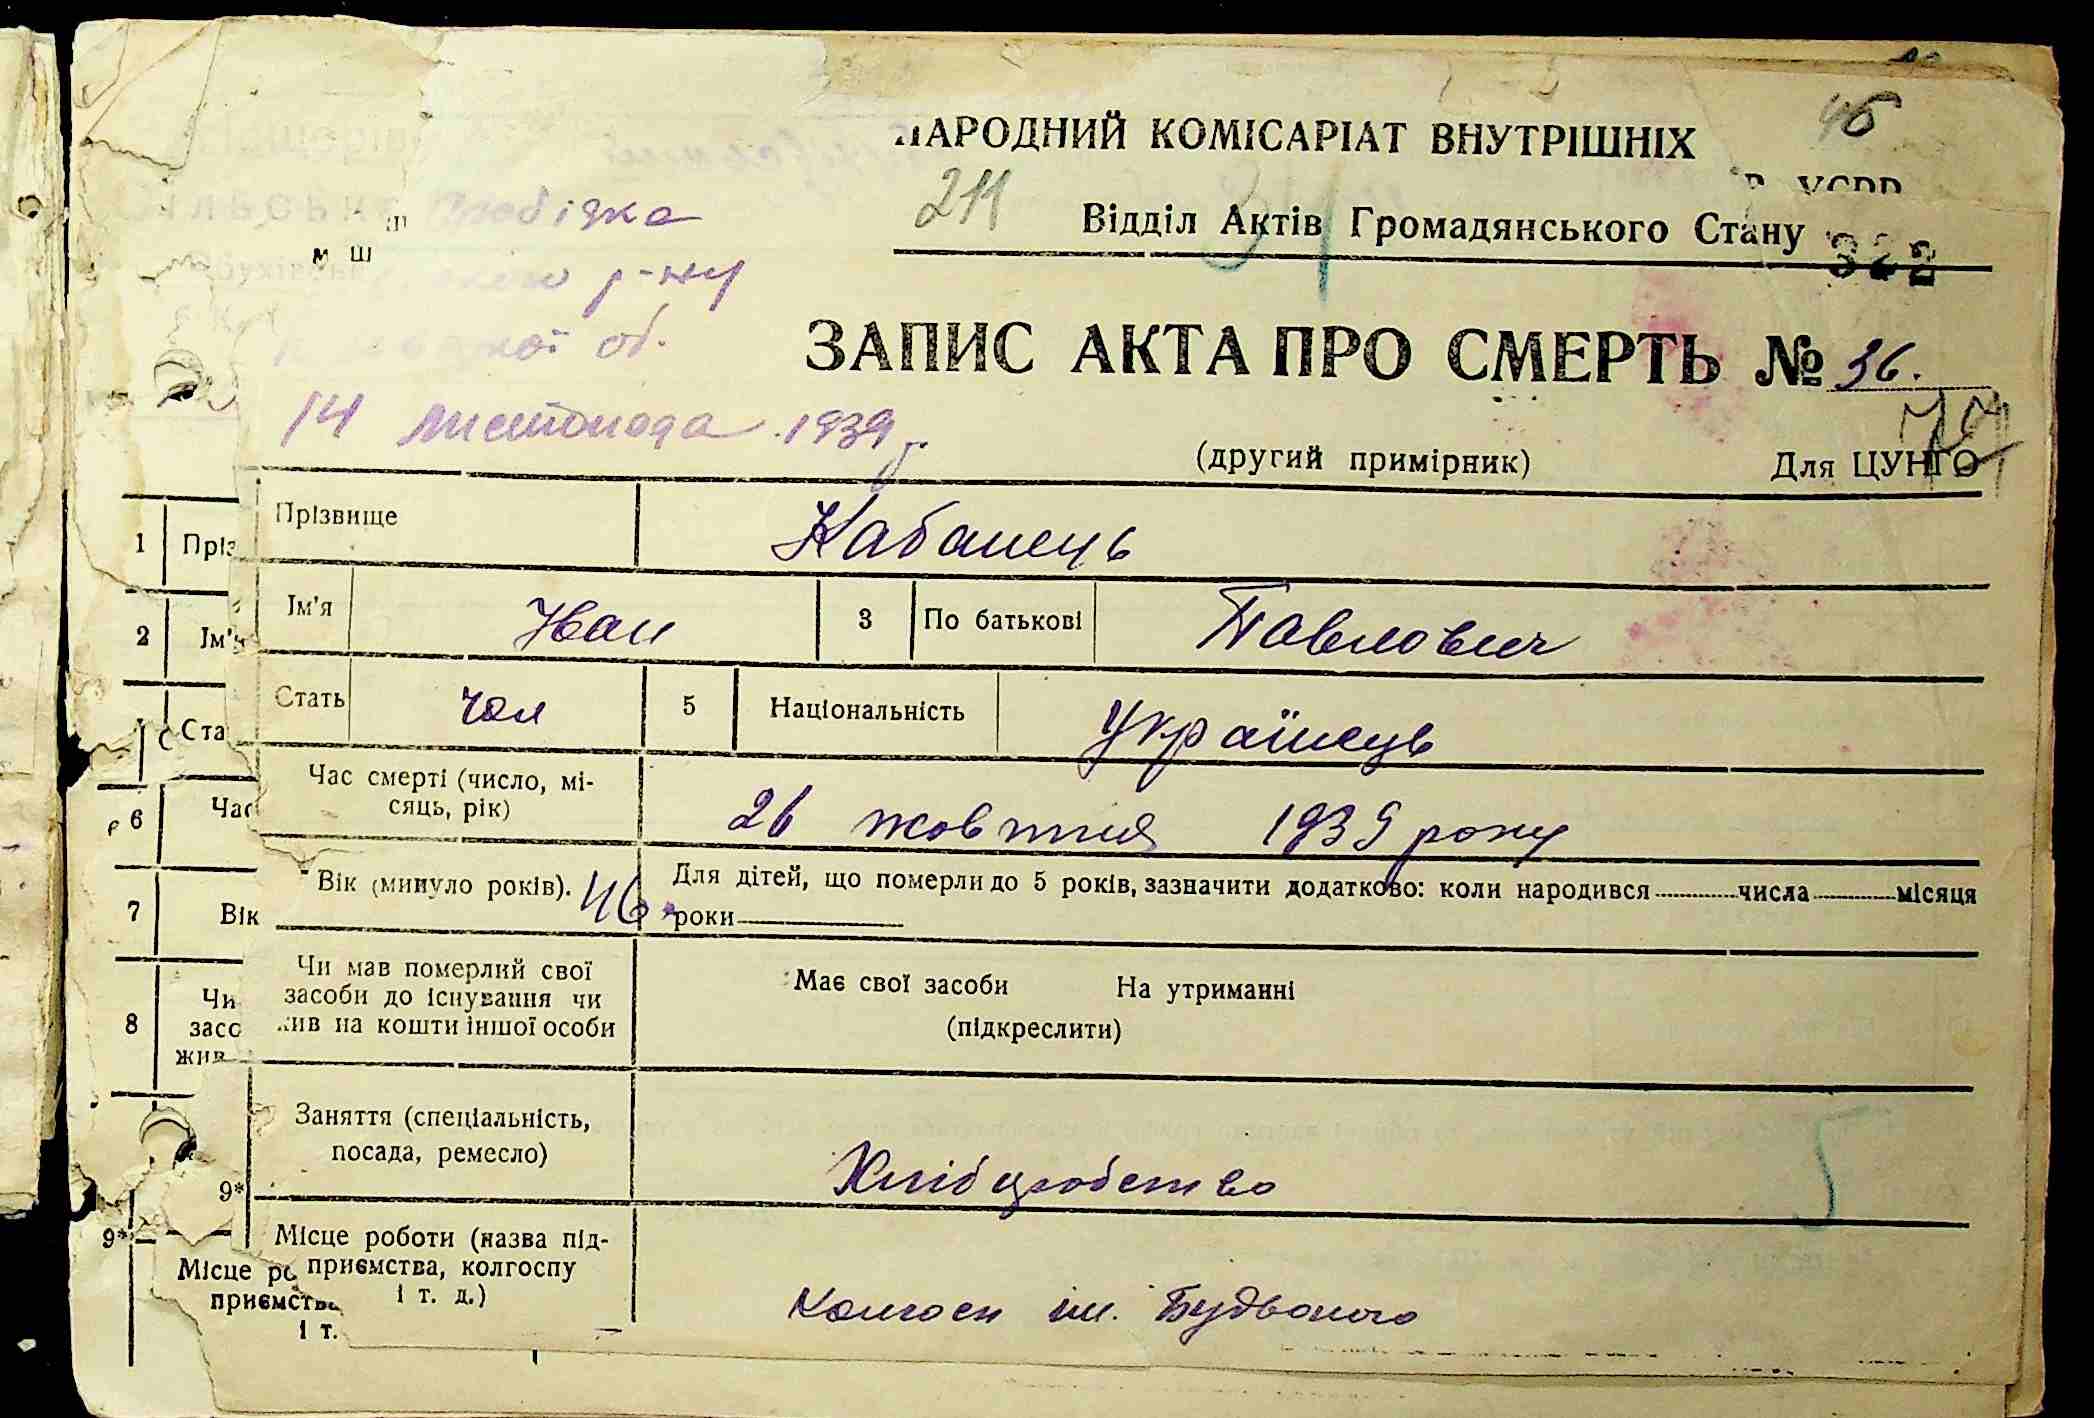 46
НАРОДНИЙ КОМІСАРІАТ ВНУТРІШНІХ
УСРР
211
Відділ Актів Громадянського Стану
322
р-ну
об.
ЗАПИС АКТА ПРО СМЕРТЬ № 36.
14 листопада 1939 р.
(другий примірник) Для ЦУНГО
1 Пріз Прізвище Кабанець
2 Ім'я Ім'я Иван 3 По батькові Павлович
Ста Стать чол 5 Національність Українець
6 Час Час смерті (число, мі-
сяць, рік) 26 жовтня 1939 року
7 Вік Вік (минуло років). 46 Для дітей, що померли до 5 років, зазначити додатково: коли народився числа місяця
роки
8 Чи Чи мав померлий свої
засо засоби до існування чи
жив жив на кошти іншої особи
Має свої засоби На утриманні
(підкреслити)
9* Заняття (спеціальність,
посада, ремесло) Хліборобство
5
9* Місце роботи (назва під-
Місце ро приємства, колгоспу
приємства і т. д.)
і т.
Колгосп ім. Будьоного